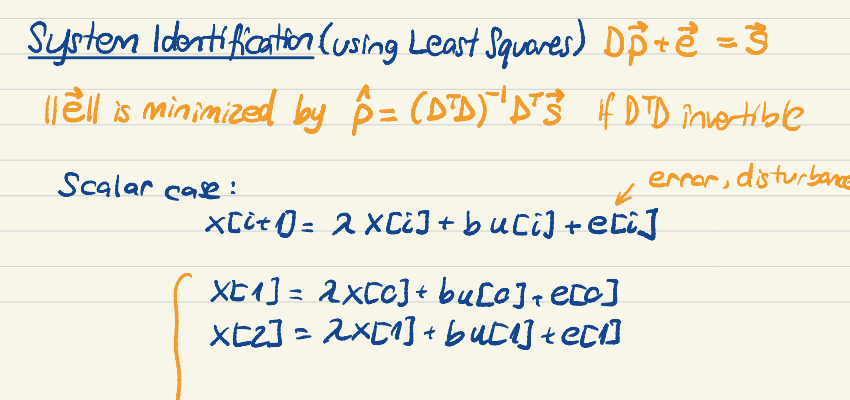 System Identification (using Least Squares) Dp⃗ + e⃗ = s⃗
||e⃗|| is minimized by p̂ = (DᵀD)⁻¹Dᵀs⃗ if DᵀD invertible
error, disturbance
Scalar case:
x[i+1] = λx[i] + bu[i] + e[i]
x[1] = λx[0] + bu[0] + e[0]
x[2] = λx[1] + bu[1] + e[1]